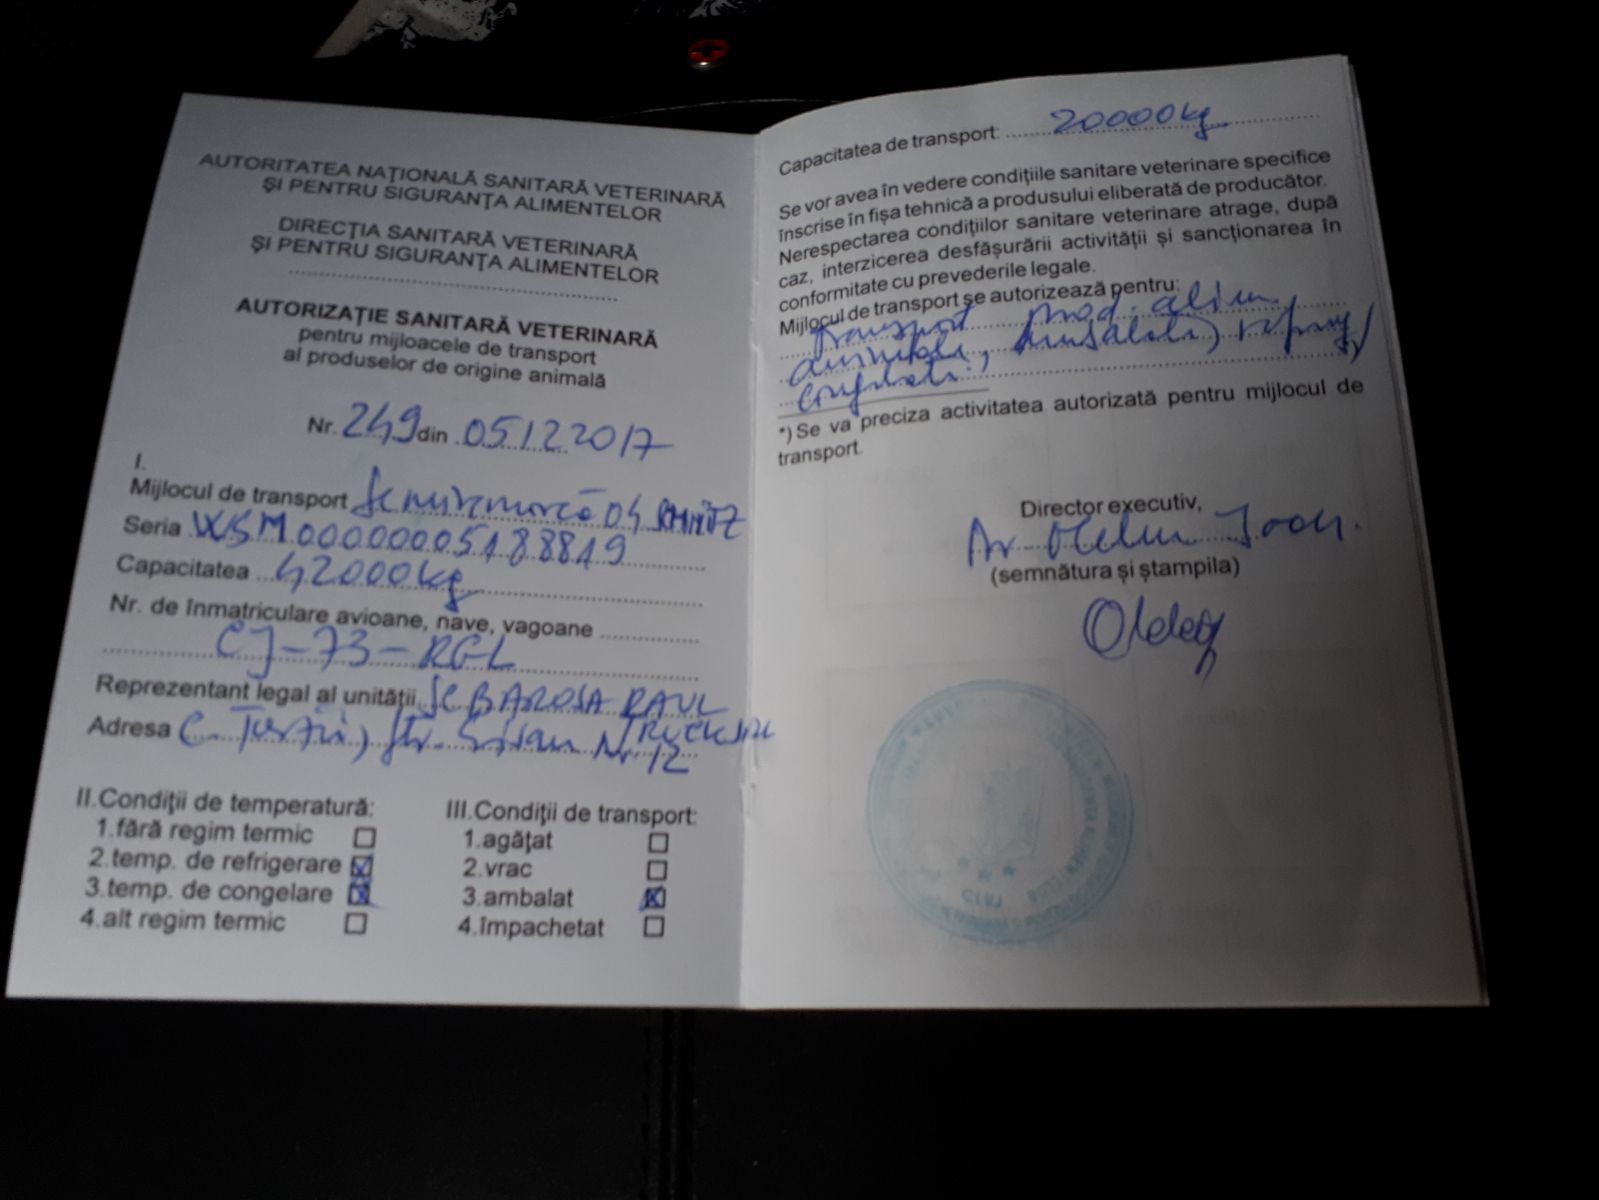 AUTORITATEA NAŢIONALĂ SANITARĂ VETERINARĂ
ŞI PENTRU SIGURANŢA ALIMENTELOR
DIRECŢIA SANITARĂ VETERINARĂ
ŞI PENTRU SIGURANŢA ALIMENTELOR
AUTORIZAŢIE SANITARĂ VETERINARĂ
pentru mijloacele de transport
al produselor de origine animală
Nr. 249 din 05.12.2017
I.
Mijlocul de transport Semiremorcă O4 SCHMITZ
Seria WSM00000005188819
Capacitatea 42000kg
Nr. de înmatriculare avioane, nave, vagoane
CJ-73-RGL
Reprezentant legal al unităţii SC BAROSA RAUL
TRUCK SRL
Adresa C. Turzii, str. Nr 12
II.Condiţii de temperatură:
1.fără regim termic
2.temp. de refrigerare
3.temp. de congelare
4.alt regim termic
III.Condiţii de transport:
1.agăţat
2.vrac
3.ambalat
4.împachetat
Capacitatea de transport: 20000kg
Se vor avea în vedere condiţiile sanitare veterinare specifice
înscrise în fişa tehnică a produsului eliberată de producător.
Nerespectarea condiţiilor sanitare veterinare atrage, după
caz, interzicerea desfăşurării activităţii şi sancţionarea în
conformitate cu prevederile legale.
Mijlocul de transport se autorizează pentru:
transport prod. alim
ambalate, refrig,
congelate.
*) Se va preciza activitatea autorizată pentru mijlocul de
transport.
Director executiv,
Ioan
(semnătura şi ştampila)
CLUJ